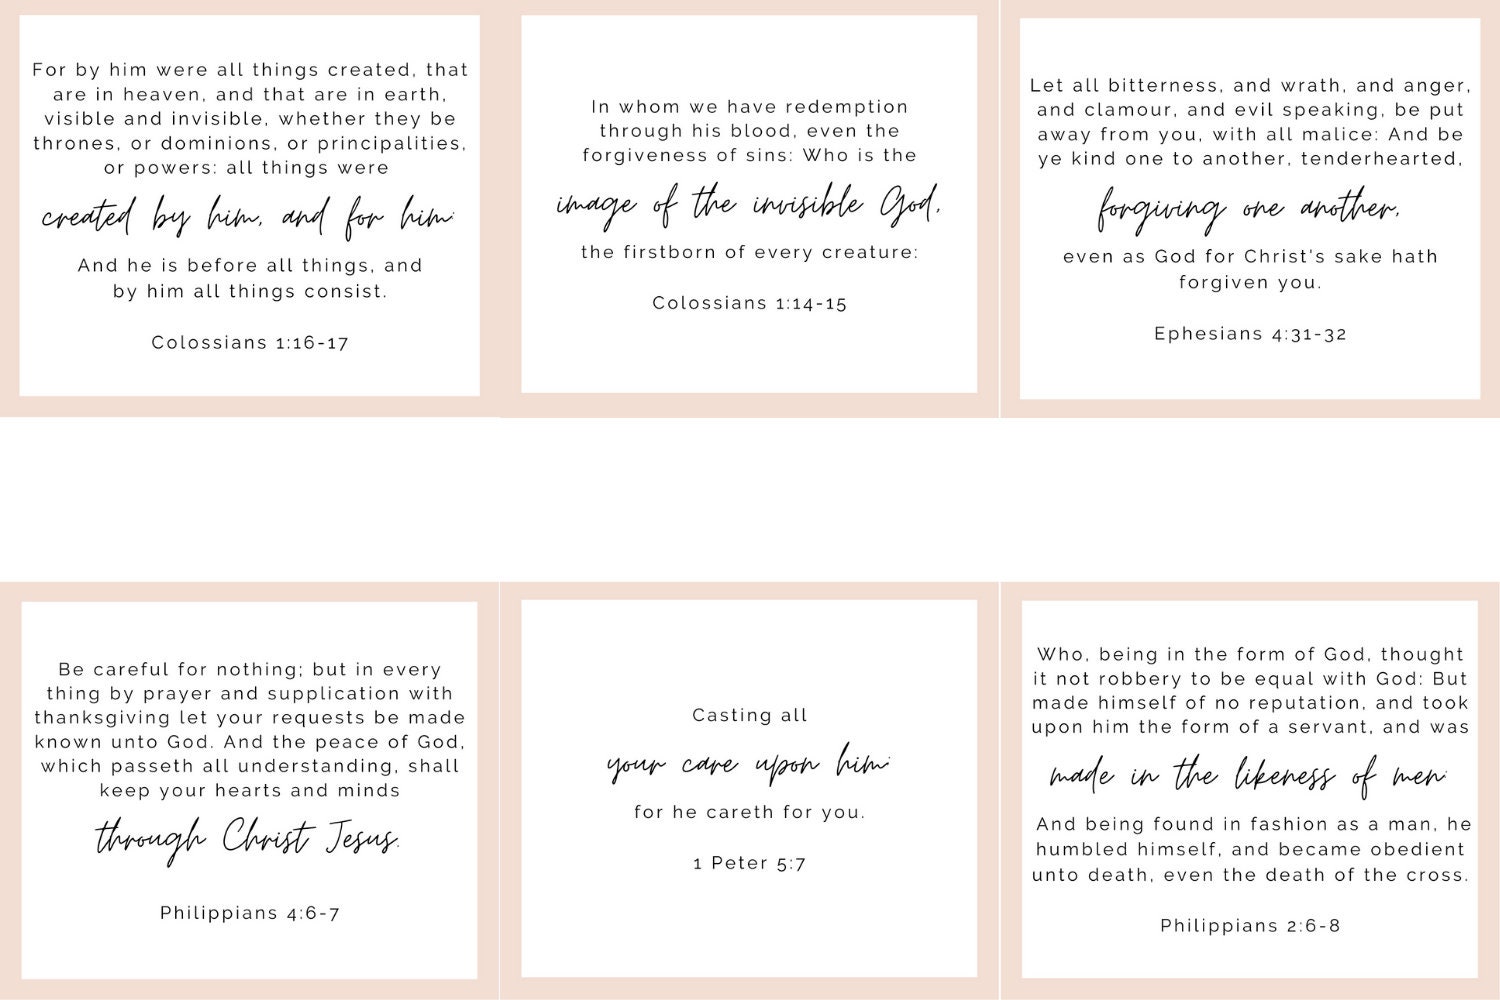 For by him were all things created, that
are in heaven, and that are in earth,
visible and invisible, whether they be
thrones, or dominions, or principalities,
or powers: all things were
created by him, and for him:
And he is before all things, and
by him all things consist.
Colossians 1:16-17
In whom we have redemption
through his blood, even the
forgiveness of sins: Who is the
image of the invisible God,
the firstborn of every creature:
Colossians 1:14-15
Let all bitterness, and wrath, and anger,
and clamour, and evil speaking, be put
away from you, with all malice: And be
ye kind one to another, tenderhearted,
forgiving one another,
even as God for Christ's sake hath
forgiven you.
Ephesians 4:31-32
Be careful for nothing; but in every
thing by prayer and supplication with
thanksgiving let your requests be made
known unto God. And the peace of God,
which passeth all understanding, shall
keep your hearts and minds
through Christ Jesus.
Philippians 4:6-7
Casting all
your care upon him:
for he careth for you.
1 Peter 5:7
Who, being in the form of God, thought
it not robbery to be equal with God: But
made himself of no reputation, and took
upon him the form of a servant, and was
made in the likeness of men:
And being found in fashion as a man, he
humbled himself, and became obedient
unto death, even the death of the cross.
Philippians 2:6-8